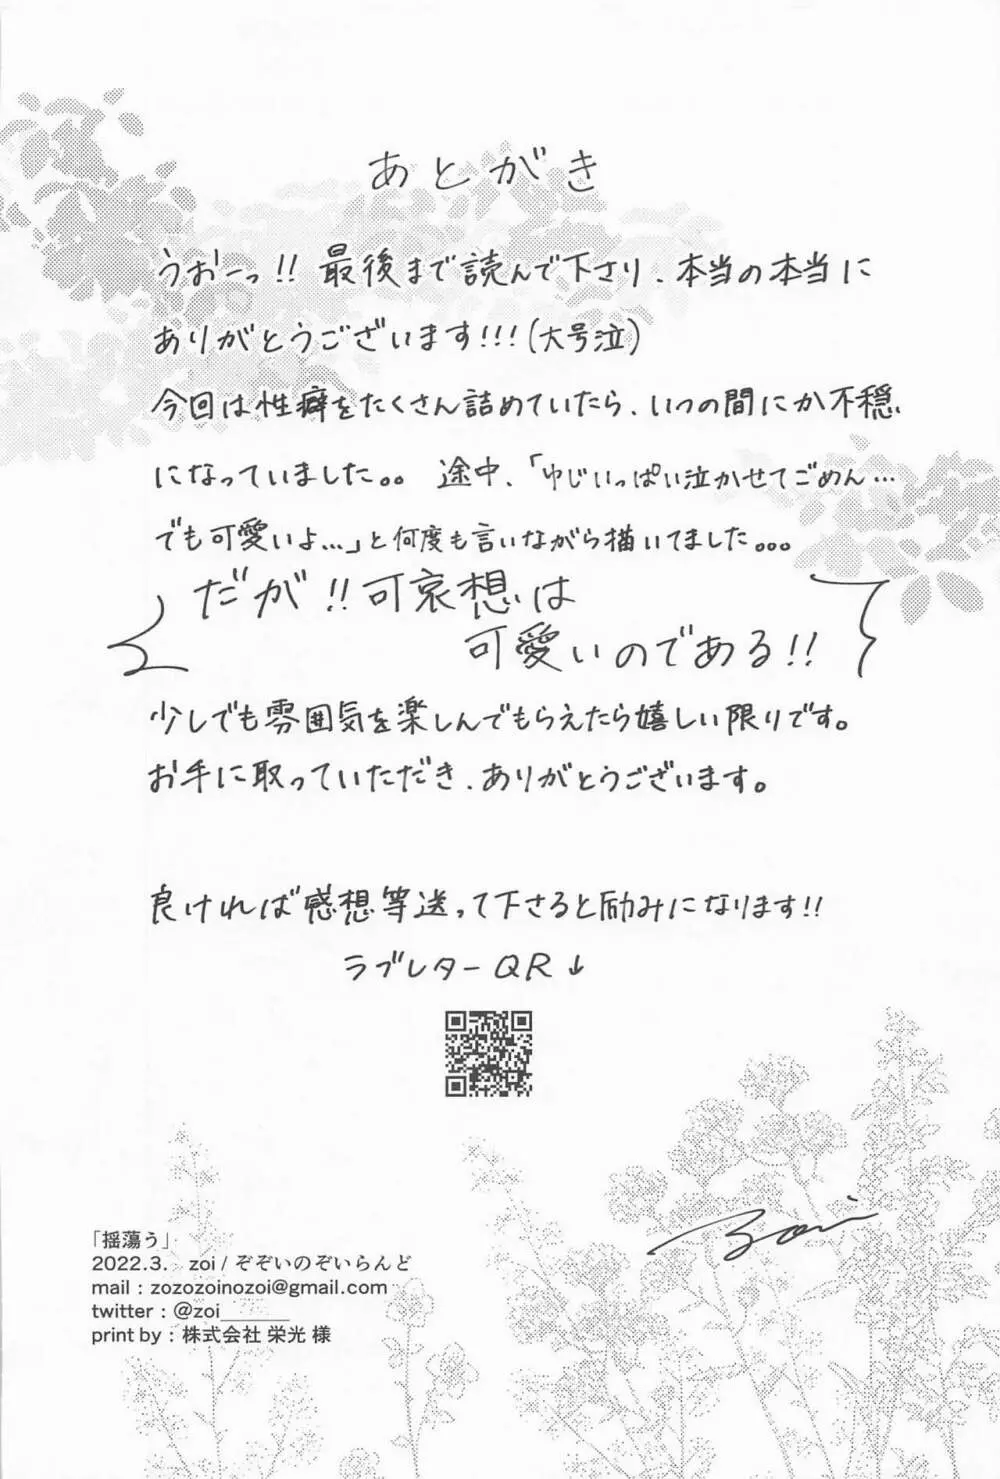 あとがき
うおーっ!! 最後まで読んで下さり、本当の本当に
ありがとうございます!!!(大号泣)
今回は性癖をたくさん詰めていたら、いつの間にか不穏
になっていました。。 途中、「ゆじいっぱい泣かせてごめん…
でも可愛いよ…」と何度も言いながら描いてました。。。
だが!!可哀想は
可愛いのである!!
少しでも雰囲気を楽しんでもらえたら嬉しい限りです。
お手に取っていただき、ありがとうございます。
良ければ感想等送って下さると励みになります!!
ラブレターQR↓
zoi
「揺蕩う」
2022.3. zoi / ぞぞいのぞいらんど
mail : zozozoinozoi@gmail.com
twitter : @zoi________
print by : 株式会社 栄光 様